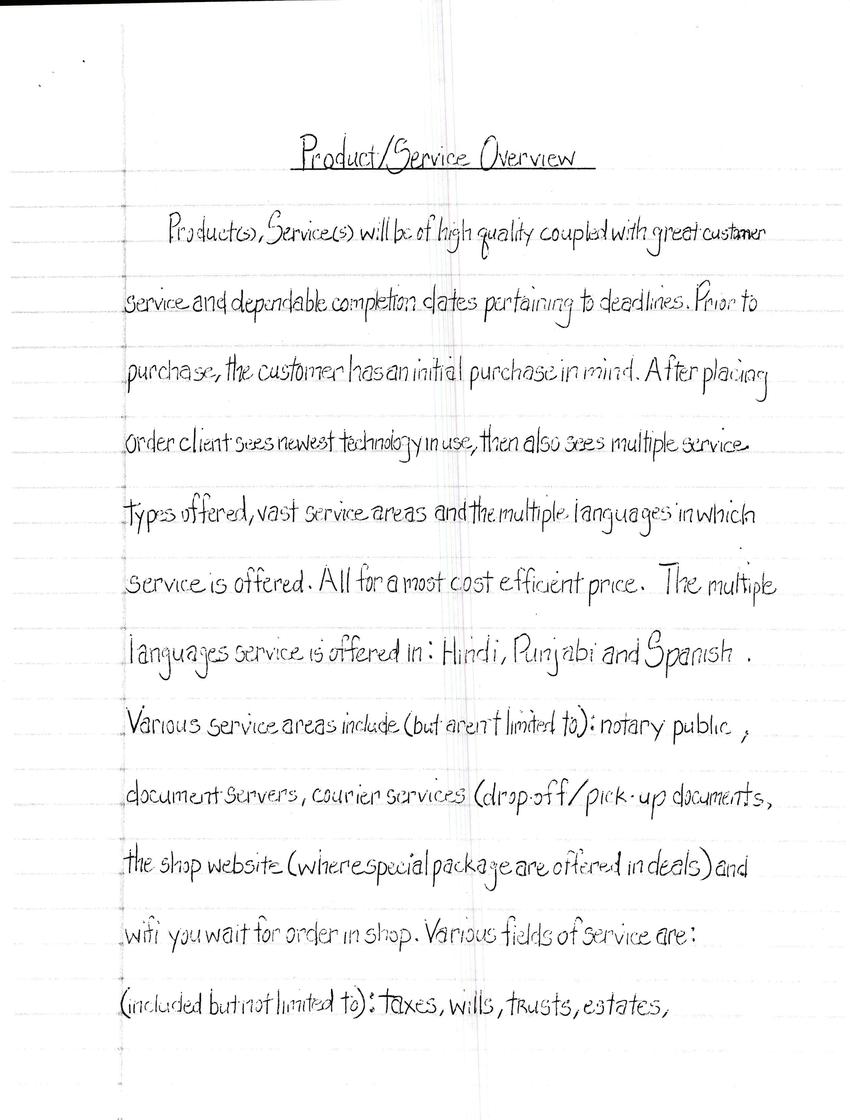 Product/Service Overview
Product(s), Service(s) will be of high quality coupled with great customer
service and dependable completion dates pertaining to deadlines. Prior to
purchase, the customer has an initial purchase in mind. After placing
order client sees newest technology in use, then also sees multiple service
types offered, vast service areas and the multiple languages in which
service is offered. All for a most cost efficient price. The multiple
languages service is offered in: Hindi, Punjabi and Spanish.
Various service areas include (but aren't limited to): notary public,
document servers, courier services (drop-off/pick-up documents,
the shop website (where special package are offered in deals) and
wifi you wait for order in shop. Various fields of service are:
(included but not limited to): taxes, wills, trusts, estates,